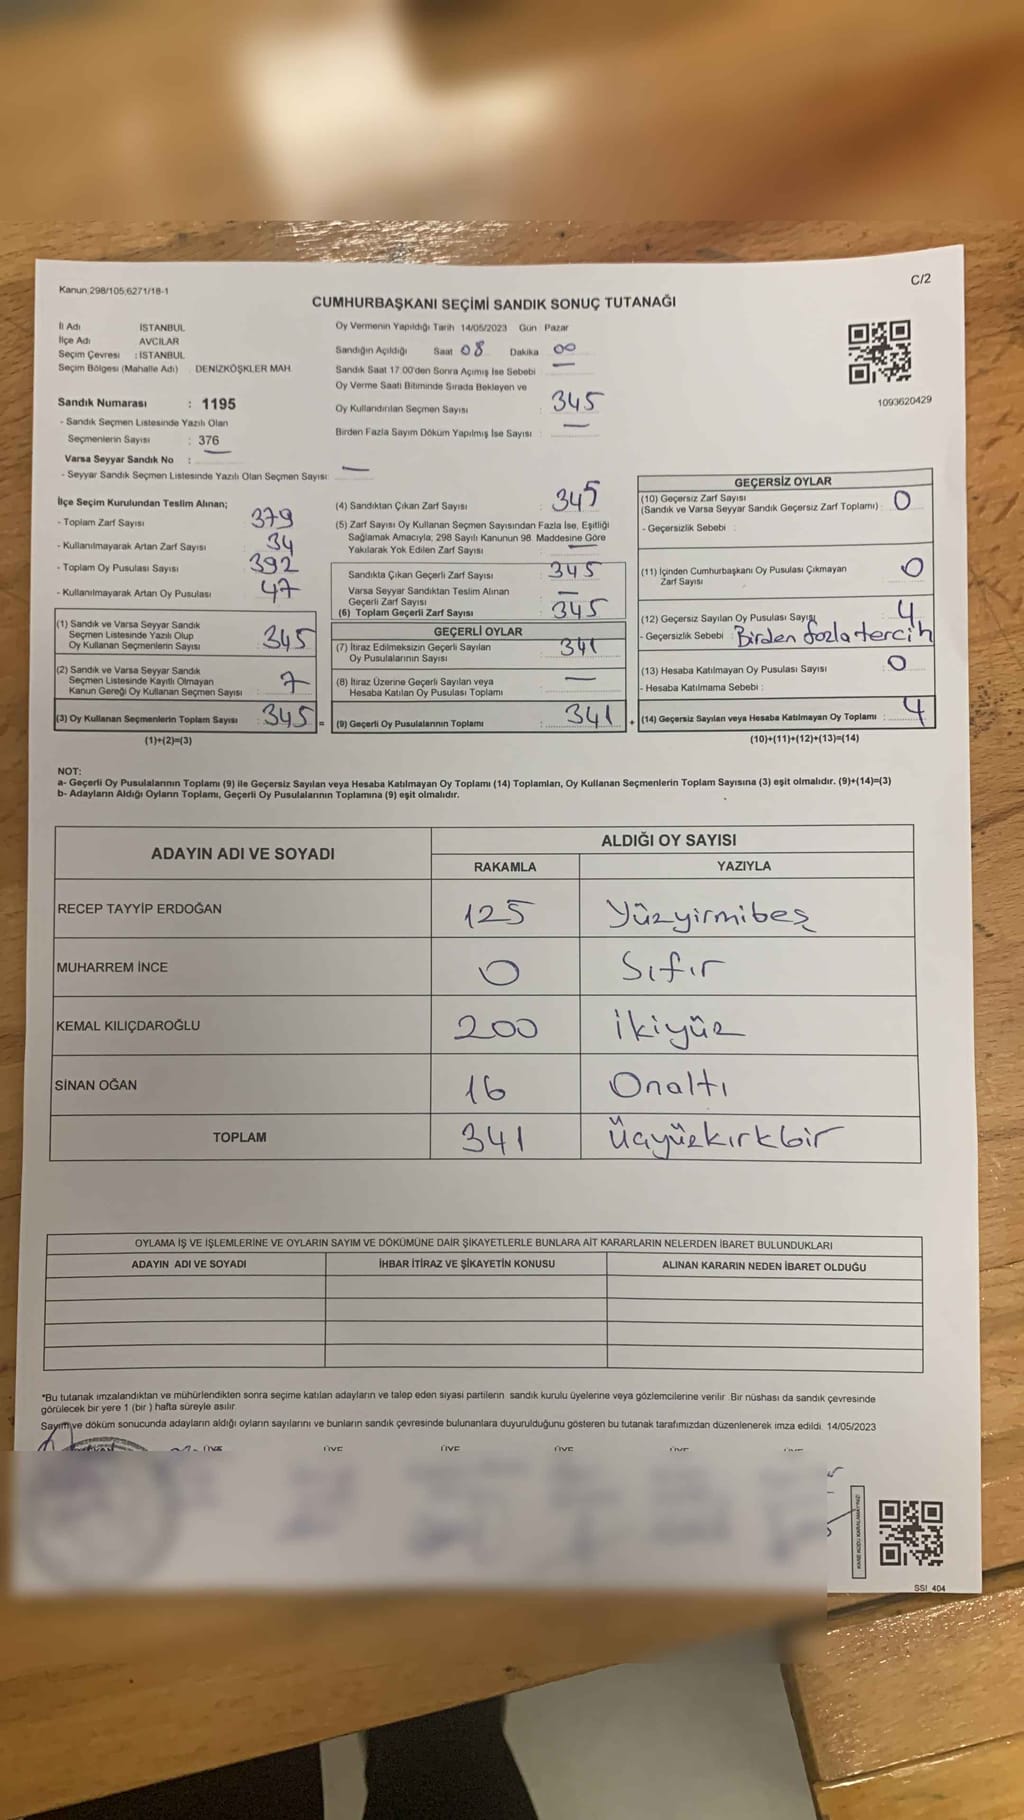 C/2
Kanun:298/105;6271/18-1
CUMHURBAŞKANI SEÇİMİ SANDIK SONUÇ TUTANAĞI
İl Adı İSTANBUL
İlçe Adı AVCILAR
Seçim Çevresi : İSTANBUL
Seçim Bölgesi (Mahalle Adı) DENİZKÖŞKLER MAH.
Oy Vermenin Yapıldığı Tarih 14/05/2023 Gün Pazar
Sandığın Açıldığı Saat 08 Dakika 00
Sandık Saat 17.00'den Sonra Açımış İse Sebebi : —
Oy Verme Saati Bitiminde Sırada Bekleyen ve
Oy Kullandırılan Seçmen Sayısı : 345
Birden Fazla Sayım Döküm Yapılmış İse Sayısı : —
1093620429
Sandık Numarası : 1195
- Sandık Seçmen Listesinde Yazılı Olan
Seçmenlerin Sayısı : 376
Varsa Seyyar Sandık No : —
- Seyyar Sandık Seçmen Listesinde Yazılı Olan Seçmen Sayısı: —
İlçe Seçim Kurulundan Teslim Alınan;
- Toplam Zarf Sayısı 379
- Kullanılmayarak Artan Zarf Sayısı 34
- Toplam Oy Pusulası Sayısı 392
- Kullanılmayarak Artan Oy Pusulası 47
(1) Sandık ve Varsa Seyyar Sandık
Seçmen Listesinde Yazılı Olup
Oy Kullanan Seçmenlerin Sayısı 345
(2) Sandık ve Varsa Seyyar Sandık
Seçmen Listesinde Kayıtlı Olmayan
Kanun Gereği Oy Kullanan Seçmen Sayısı 7
(3) Oy Kullanan Seçmenlerin Toplam Sayısı : 345 =
(1)+(2)=(3)
(4) Sandıktan Çıkan Zarf Sayısı 345
(5) Zarf Sayısı Oy Kullanan Seçmen Sayısından Fazla İse, Eşitliği
Sağlamak Amacıyla; 298 Sayılı Kanunun 98. Maddesine Göre
Yakılarak Yok Edilen Zarf Sayısı —
Sandıkta Çıkan Geçerli Zarf Sayısı 345
Varsa Seyyar Sandıktan Teslim Alınan
Geçerli Zarf Sayısı —
(6) Toplam Geçerli Zarf Sayısı 345
GEÇERLİ OYLAR
(7) İtiraz Edilmeksizin Geçerli Sayılan
Oy Pusulalarının Sayısı 341
(8) İtiraz Üzerine Geçerli Sayılan veya
Hesaba Katılan Oy Pusulası Toplamı —
(9) Geçerli Oy Pusulalarının Toplamı : 341 +
GEÇERSİZ OYLAR
(10) Geçersiz Zarf Sayısı
(Sandık ve Varsa Seyyar Sandık Geçersiz Zarf Toplamı) : 0
- Geçersizlik Sebebi :
(11) İçinden Cumhurbaşkanı Oy Pusulası Çıkmayan
Zarf Sayısı 0
(12) Geçersiz Sayılan Oy Pusulası Sayısı 4
- Geçersizlik Sebebi Birden fazla tercih
(13) Hesaba Katılmayan Oy Pusulası Sayısı 0
- Hesaba Katılmama Sebebi :
(14) Geçersiz Sayılan veya Hesaba Katılmayan Oy Toplamı : 4
(10)+(11)+(12)+(13)=(14)
NOT:
a- Geçerli Oy Pusulalarının Toplamı (9) ile Geçersiz Sayılan veya Hesaba Katılmayan Oy Toplamı (14) Toplamları, Oy Kullanan Seçmenlerin Toplam Sayısına (3) eşit olmalıdır. (9)+(14)=(3)
b- Adayların Aldığı Oyların Toplamı, Geçerli Oy Pusulalarının Toplamına (9) eşit olmalıdır.
ADAYIN ADI VE SOYADI
ALDIĞI OY SAYISI
RAKAMLA YAZIYLA
RECEP TAYYİP ERDOĞAN 125 Yüzyirmibeş
MUHARREM İNCE 0 Sıfır
KEMAL KILIÇDAROĞLU 200 ikiyüz
SİNAN OĞAN 16 Onaltı
TOPLAM 341 Üçyüzkırkbir
OYLAMA İŞ VE İŞLEMLERİNE VE OYLARIN SAYIM VE DÖKÜMÜNE DAİR ŞİKAYETLERLE BUNLARA AİT KARARLARIN NELERDEN İBARET BULUNDUKLARI
ADAYIN ADI VE SOYADI İHBAR İTİRAZ VE ŞİKAYETİN KONUSU ALINAN KARARIN NEDEN İBARET OLDUĞU
*Bu tutanak imzalandıktan ve mühürlendikten sonra seçime katılan adayların ve talep eden siyasi partilerin sandık kurulu üyelerine veya gözlemcilerine verilir. Bir nüshası da sandık çevresinde
görülecek bir yere 1 (bir) hafta süreyle asılır.
Sayım ve döküm sonucunda adayların aldığı oyların sayılarını ve bunların sandık çevresinde bulunanlara duyurulduğunu gösteren bu tutanak tarafımızdan düzenlenerek imza edildi. 14/05/2023
ÜYE ÜYE ÜYE ÜYE ÜYE
KARE KODU KARALAMAYINIZ!
SSI_404